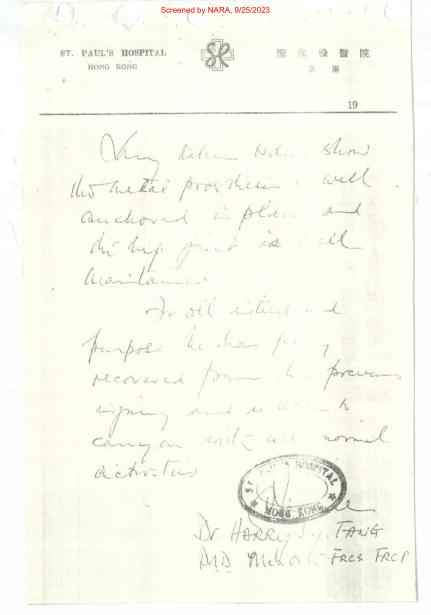 Screened by NARA, 9/25/2023
ST. PAUL'S HOSPITAL
HONG KONG
聖保祿醫院
香港
19
Xray taken today show
the metal prosthesis is well
anchored in place and
the hip joint is well
maintained
For all intent and
purpose he has fully
recovered from his previous
injury and is able to
carry on with all normal
activities
ST. PAUL'S HOSPITAL
HONG KONG
Dr. HARRY S.Y. TANG
FRCS FRCP